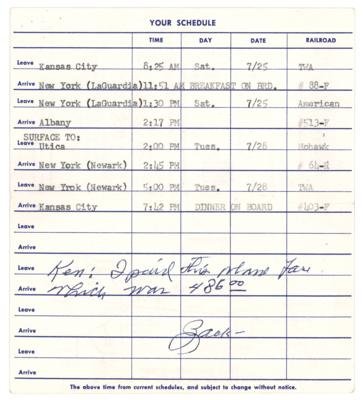 YOUR SCHEDULE
TIME DAY DATE RAILROAD
Leave Kansas City 8:25 AM Sat. 7/25 TWA
Arrive New York (LaGuardia) 11:51 AM BREAKFAST ON BRD. # 88-F
Leave New York (LaGuardia) 1:30 PM Sat. 7/25 American
Arrive Albany 2:17 PM #513-F
SURFACE TO:
Leave Utica 2:00 PM Tues. 7/28 Mohawk
Arrive New York (Newark) 2:45 PM # 64-M
Leave New Yrok (Newark) 5:00 PM Tues. 7/28 TWA
Arrive Kansas City 7:42 PM DINNER ON BOARD #403-F
Leave
Arrive
Leave Ken: I paid this plane fare
Arrive which was 486.00
Leave
Arrive Zack-
Leave
Arrive
The above time from current schedules, and subject to change without notice.